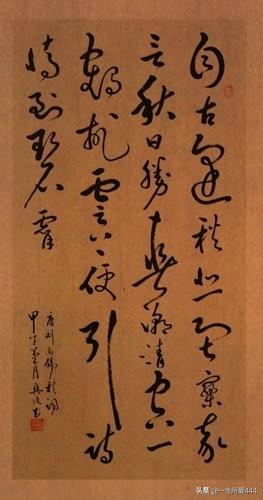 自古逢秋悲寂寥我
言秋日勝春朝晴空一
鶴排雲上便引詩
情到碧霄
唐刘禹錫秋詞
甲午月
头条 @一生所爱444